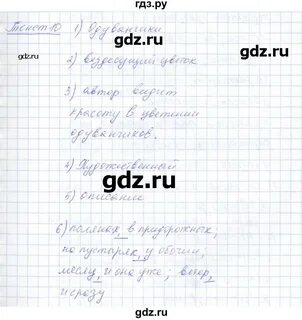 гдз.ру
Текст 10 1) Одуванчики
gdz.ru gdz.ru
2) вездесущий цветок
3) автор видит
красоту в цветении
одуванчиков.
gdz.ru gdz.ru
4) Художественный
5) описание
gdz.ru gdz.ru
6) полянах, в придорожных,
по пустырям, у обочин;
и она уже;
и сразу